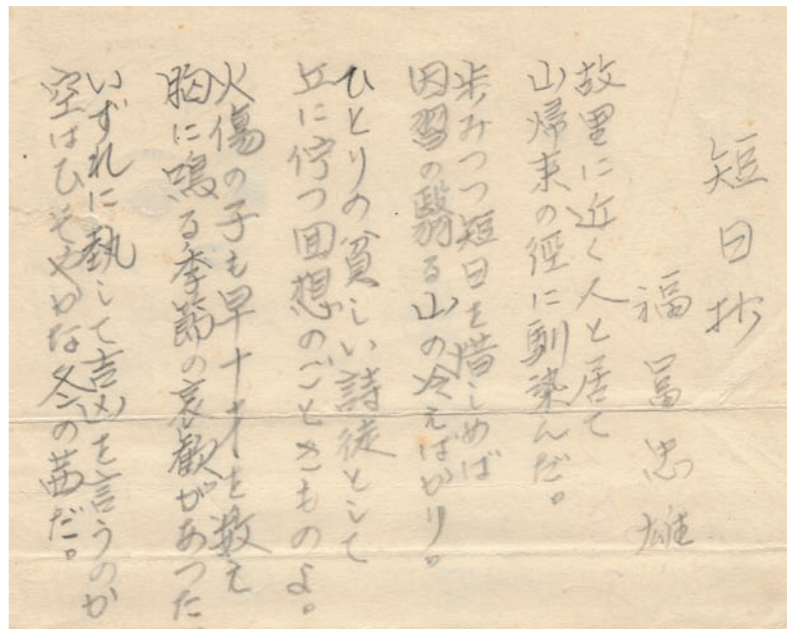 短日抄
福冨忠雄
故里に近く人と居て
山帰来の徑に馴染んだ。
歩みつつ短日を惜しめば
因習の翳る山の冷えばかり。
ひとりの貧しい詩徒として
丘に佇つ回想のごときものよ。
火傷の子も早十才を数え
胸に鳴る季節の哀歓があった。
いずれに熱して吉凶を言うのか
空はひそやかな冬の茜だ。